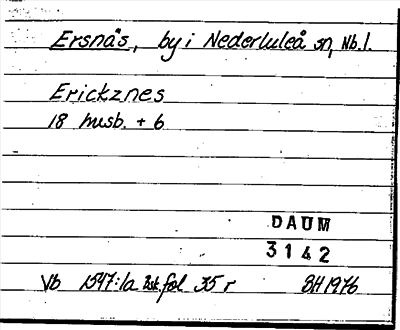 Ersnäs, by i Nederluleå sn, Nb.l.
Erickznes
18 husb. + 6
DAUM
3142
Vb 1547:1a Bsk. fol 35 r BH 1976